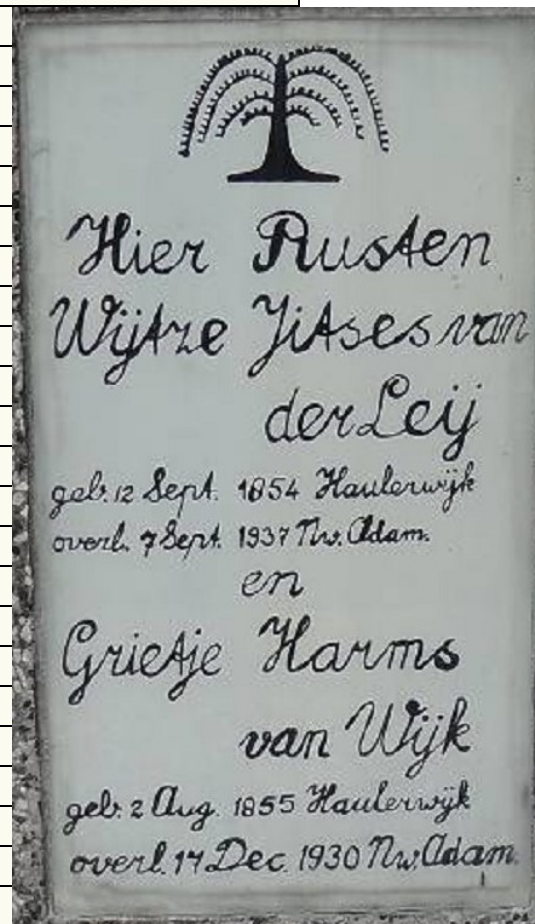 Hier Rusten
Wijtze Jitses van
der Leij
geb. 12 Sept. 1854 Haulerwijk
overl. 7 Sept. 1937 Nw. Adam.
en
Grietje Harms
van Wijk
geb. 2 Aug. 1855 Haulerwijk
overl. 17 Dec. 1930 Nw. Adam.